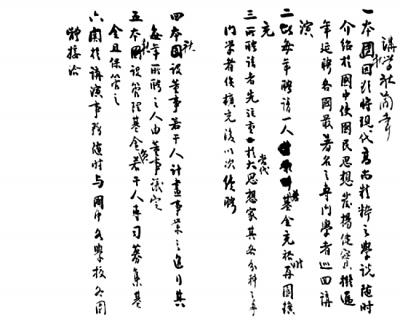 講學社簡章
一本團因欲將現代高尚精粹之學說隨時
介紹於國中使國民思想發揚健實擬遞
年延聘各國最著名之專門學者巡回講
演
二以每年聘請一人若基金充裕時再圖擴
充
三所聘請者先注重於當代大思想家其各分科之專
門學者俟擴充後以次續聘
四本社設董事若干人計畫事業之進行其
每年所聘之人由董事議定
五本社設管理基金員若干人專司募集基
金且保管之
六關於講演事務隨時與國中各學校各團
體接洽